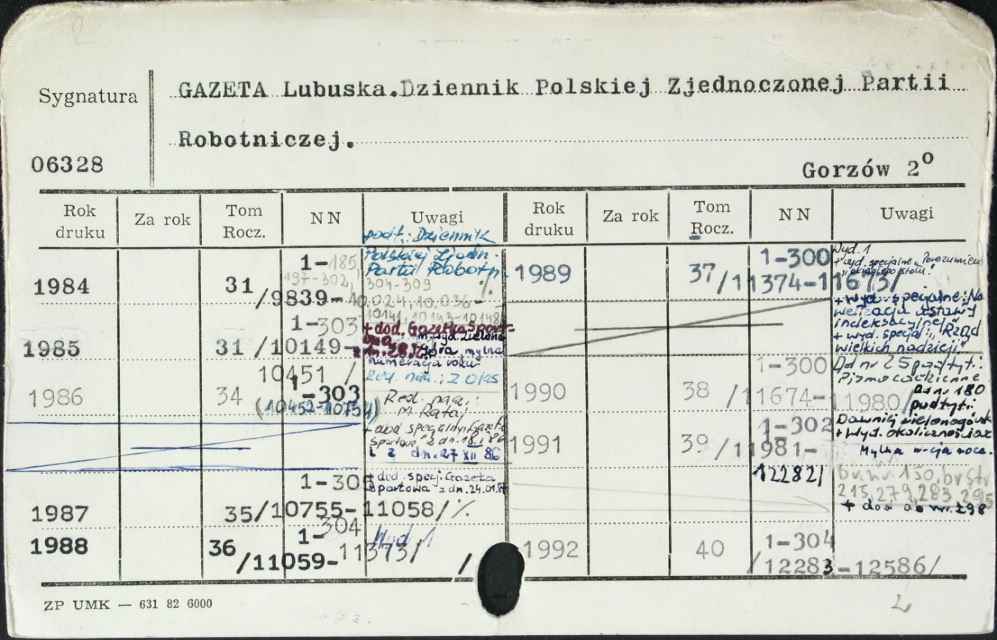 Sygnatura
GAZETA Lubuska.Dziennik Polskiej Zjednoczonej Partii
Robotniczej.
06328
Gorzów 2°
Rok druku
Za rok
Tom Rocz.
NN
Uwagi
Rok druku
Za rok
Tom Rocz.
NN
Uwagi
podt.: Dziennik
Polskiej Zjedn.
Partii Robotn.
1984 31 1-185
197-302,
304-309
/9839-10.024, 10.036-
10141, 10143-10148
1985 31 1-303
/10149-10451/
+ dod. Gazetka Sport
numeracja roku
1986 34 1-303
(10452-10754)
Red. nacz.:
M. Rataj
+ dod specjalny: Gazeta
Sportowa z dn.
i z dn. 27 XII 86
1987 35 1-305
/10755-11058/ ./.
+ dod. specj. Gazeta
Sportowa z dn. 24.01.87
1988 36 1-304
/11059-11373/
Wyd. 1
1989 37 1-300
/11374-11673/
Wyd. 1
+ wyd. specjalne: Porozumienie
+ wyd. specjalne: No
welizacja ustawy
indeksacyjnej
+ wyd. specjal.: Rząd
wielkich nadziei.
1990 38 1-300
/11674-11980/
Od nr 25 podtyt.:
Pismo codzienne
Od nr 180
podtyt.:
1991 39 1-302
/11981-
12282/
+ wyd. okolicznościowe
br. nr 150, br str
215, 279, 283, 295
+ dod do nr 298
1992 40 1-304
/12283-12586/
ZP UMK — 631 82 6000